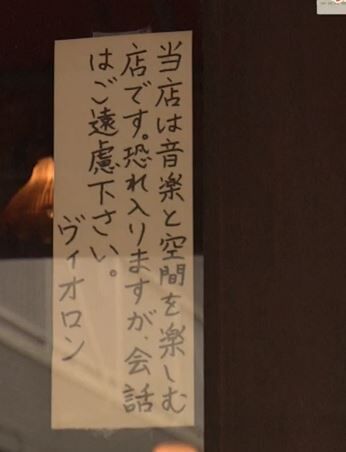 当店は音楽と空間を楽しむ
店です。恐れ入りますが、会話
はご遠慮下さい。
ヴィオロン